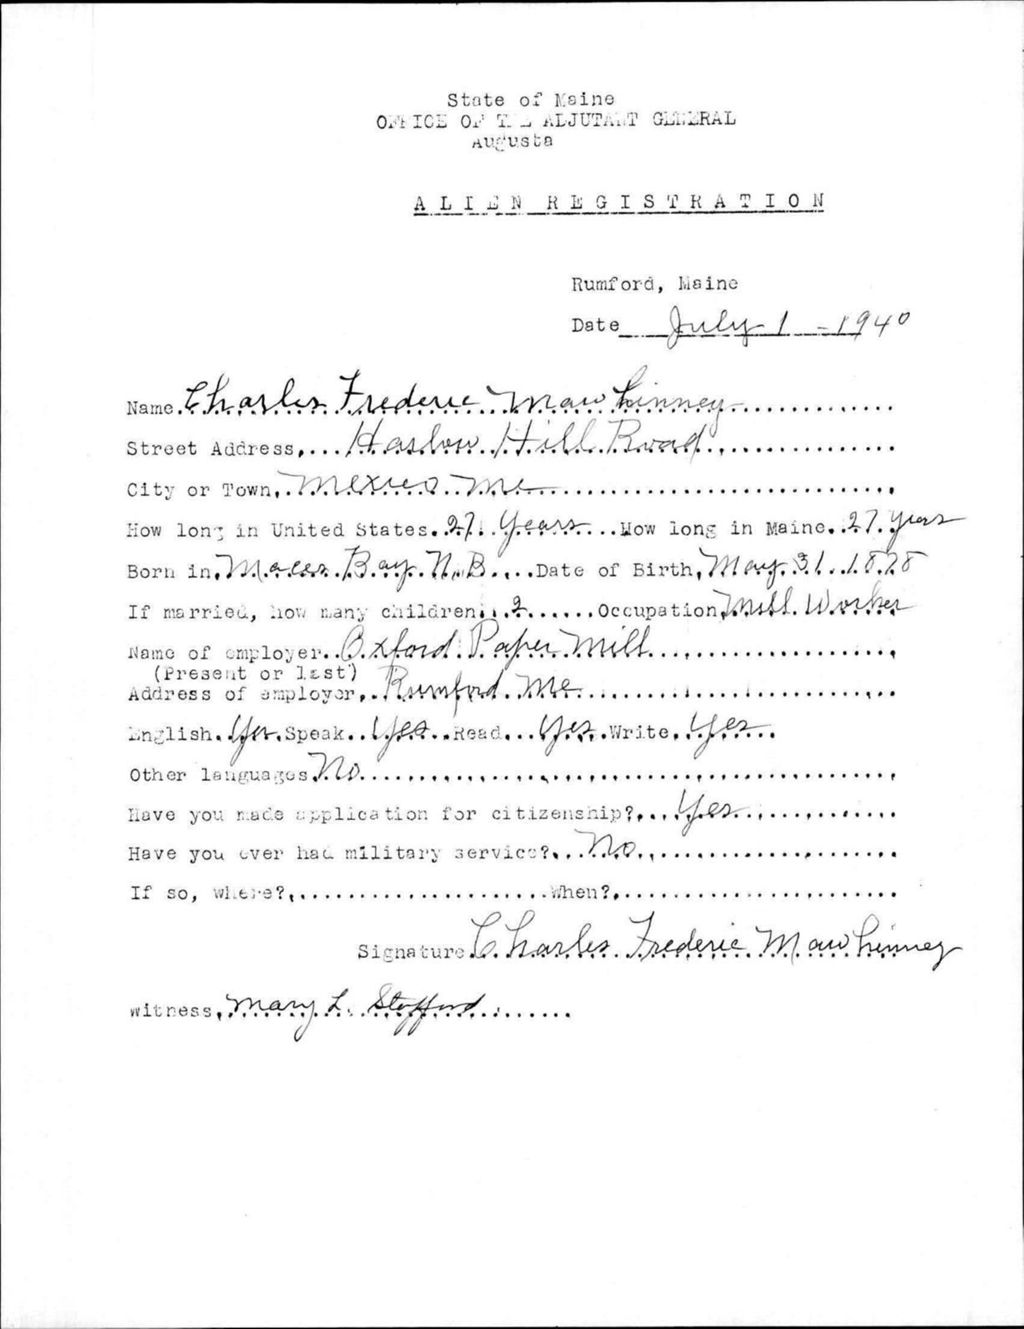 State of Maine
OFFICE OF THE ADJUTANT GENERAL
Augusta
ALIEN REGISTRATION
Rumford, Maine
Date July 1 - 1940
Name Charles Frederic Mawhinney
Street Address, Haslow Hill Road
City or Town, Mexico Me
How long in United States 27 Years How long in Maine 27 Years
Born in, Maces Bay N.B. Date of Birth, May 31 1878
If married, how many children 2 Occupation Mill Worker
Name of employer Oxford Paper Mill
(Present or last)
Address of employer, Rumford Me
English Yes Speak Yes Read Yes Write Yes
Other languages No
Have you made application for citizenship? Yes
Have you ever had military service? No
If so, where? When?
Signature Charles Frederic Mawhinney
witness, Mary L. Stofford